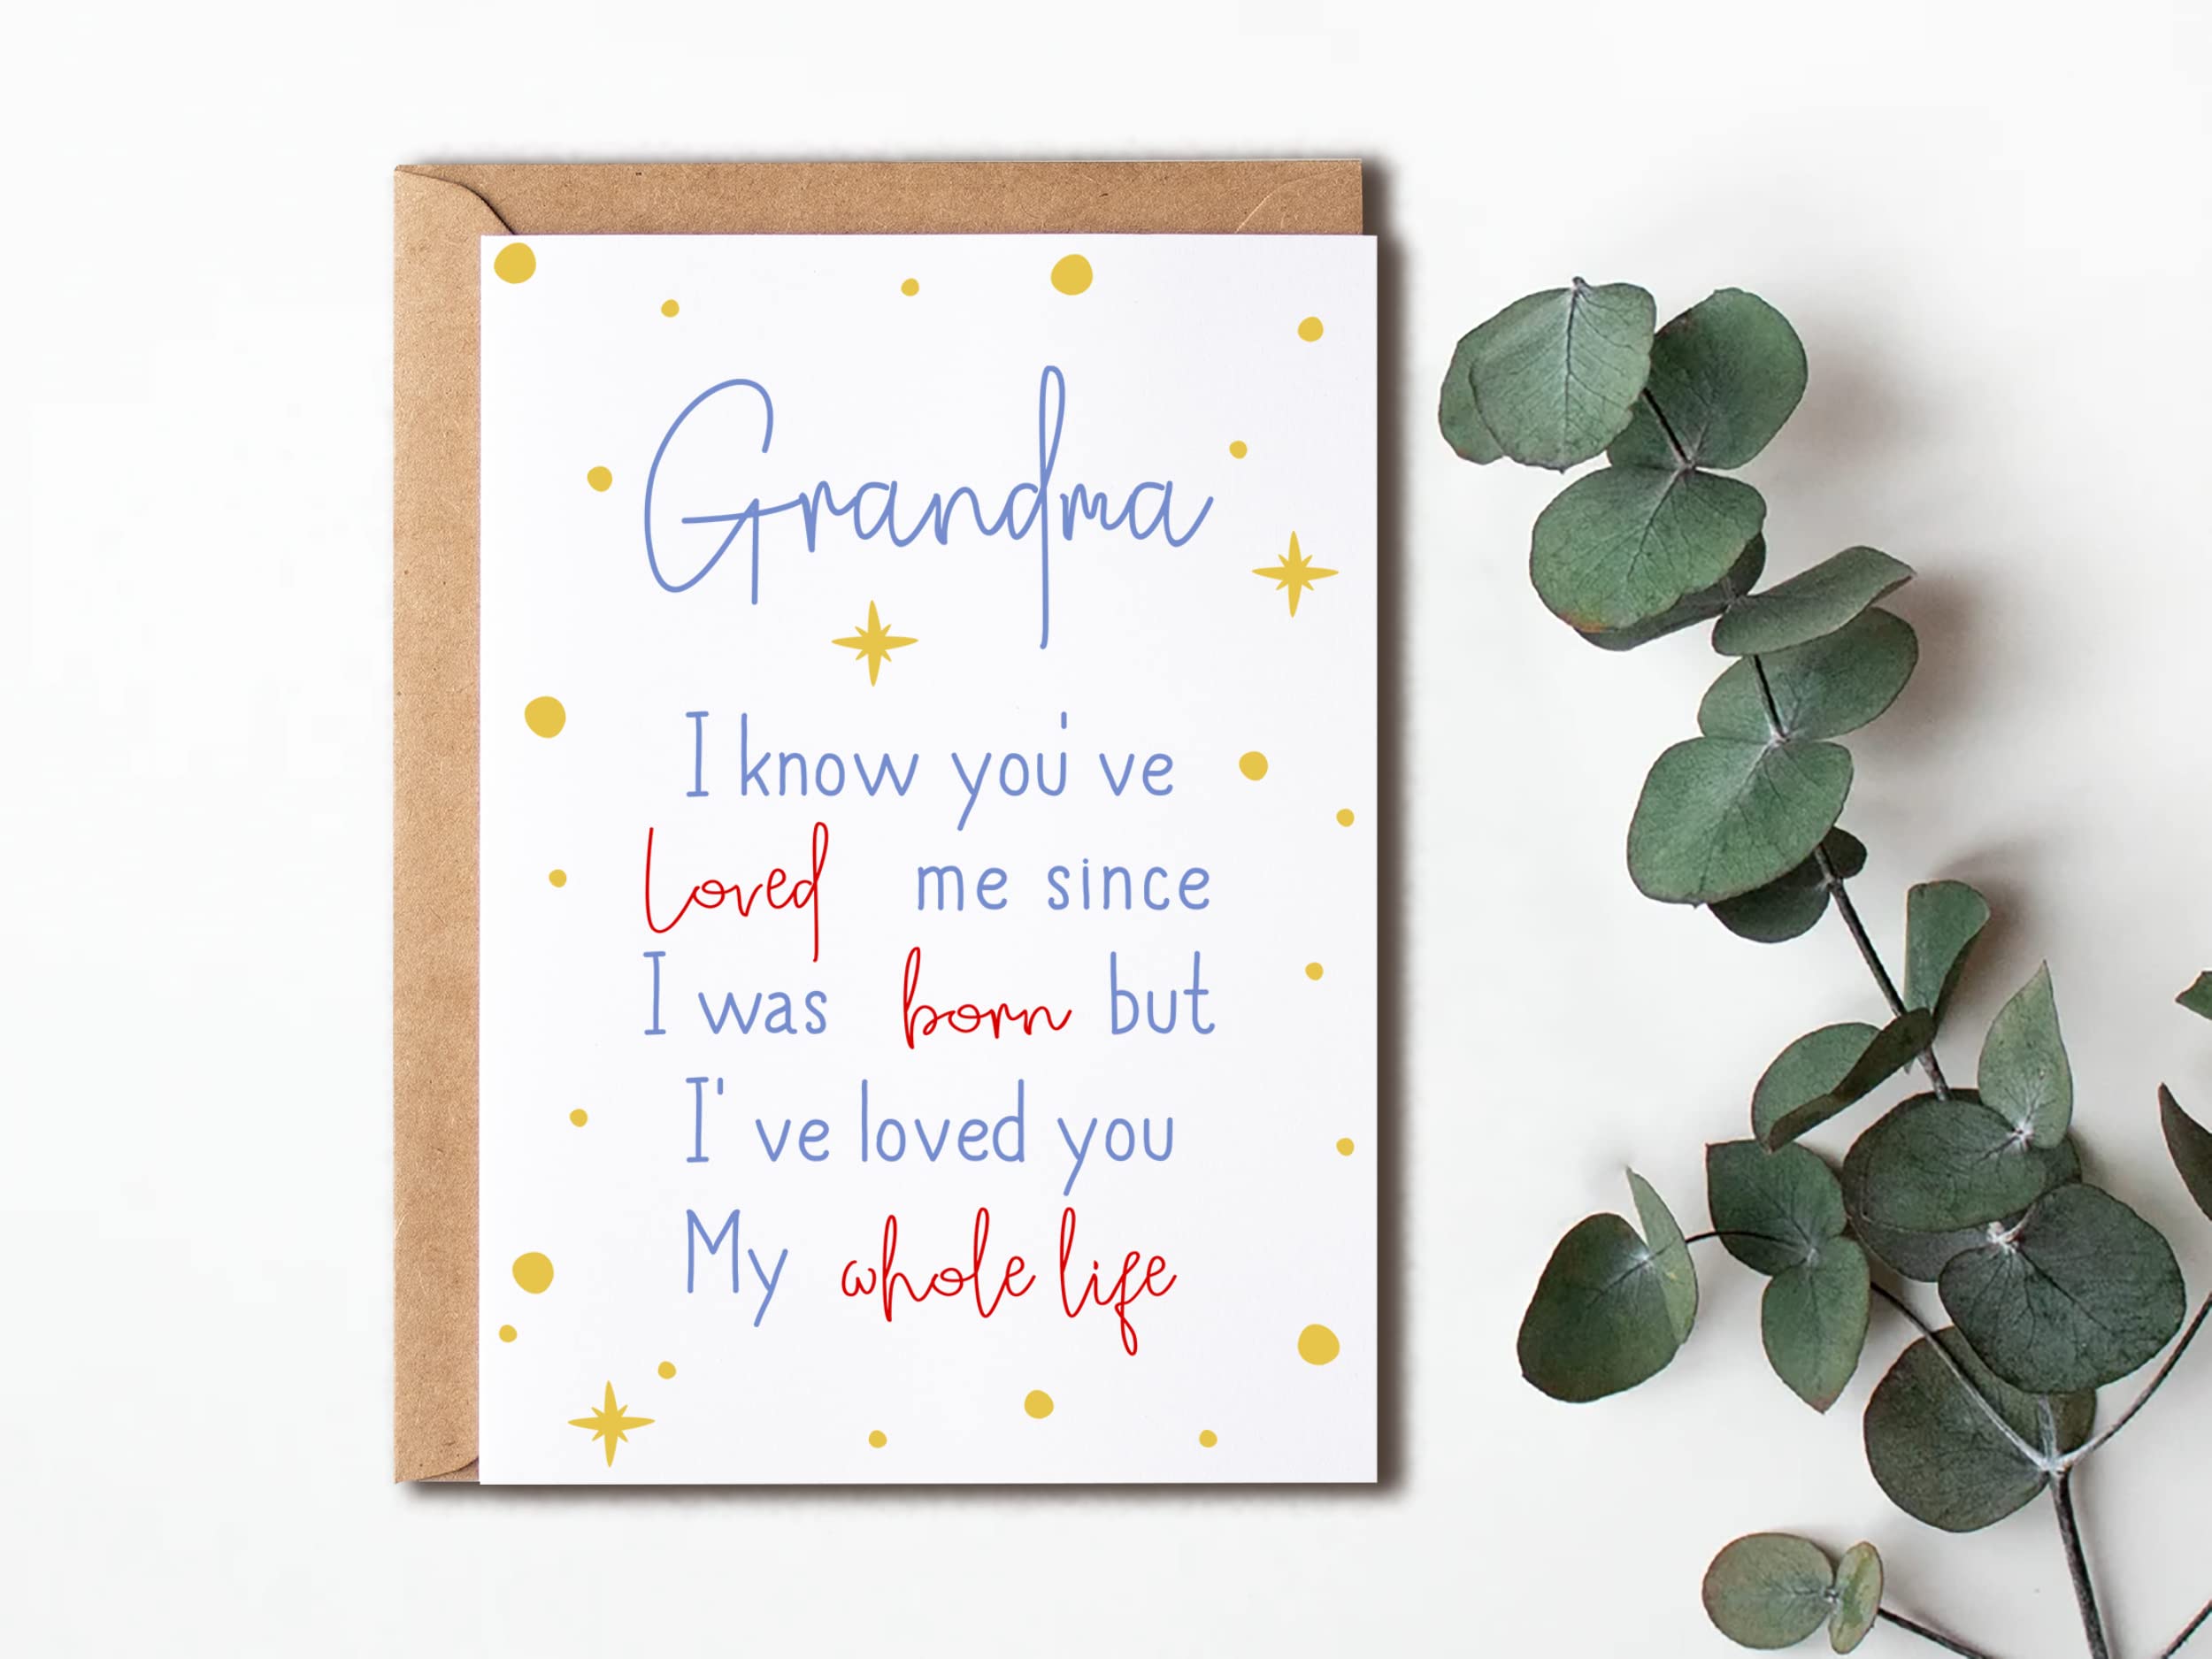 Grandma
I know you've
Loved me since
I was born but
I've loved you
My whole life